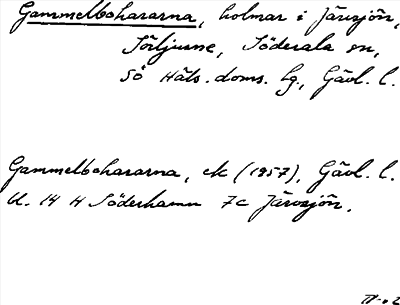 Gammelbohararna, holmar i Järvsjön,
Sörljusne, Söderala sn,
Sö Häls. doms. lg., Gävl. l.
Gammelbohararna, ek (1957), Gävl. l.
bl. 14 H Söderhamn 7c Järvsjön.